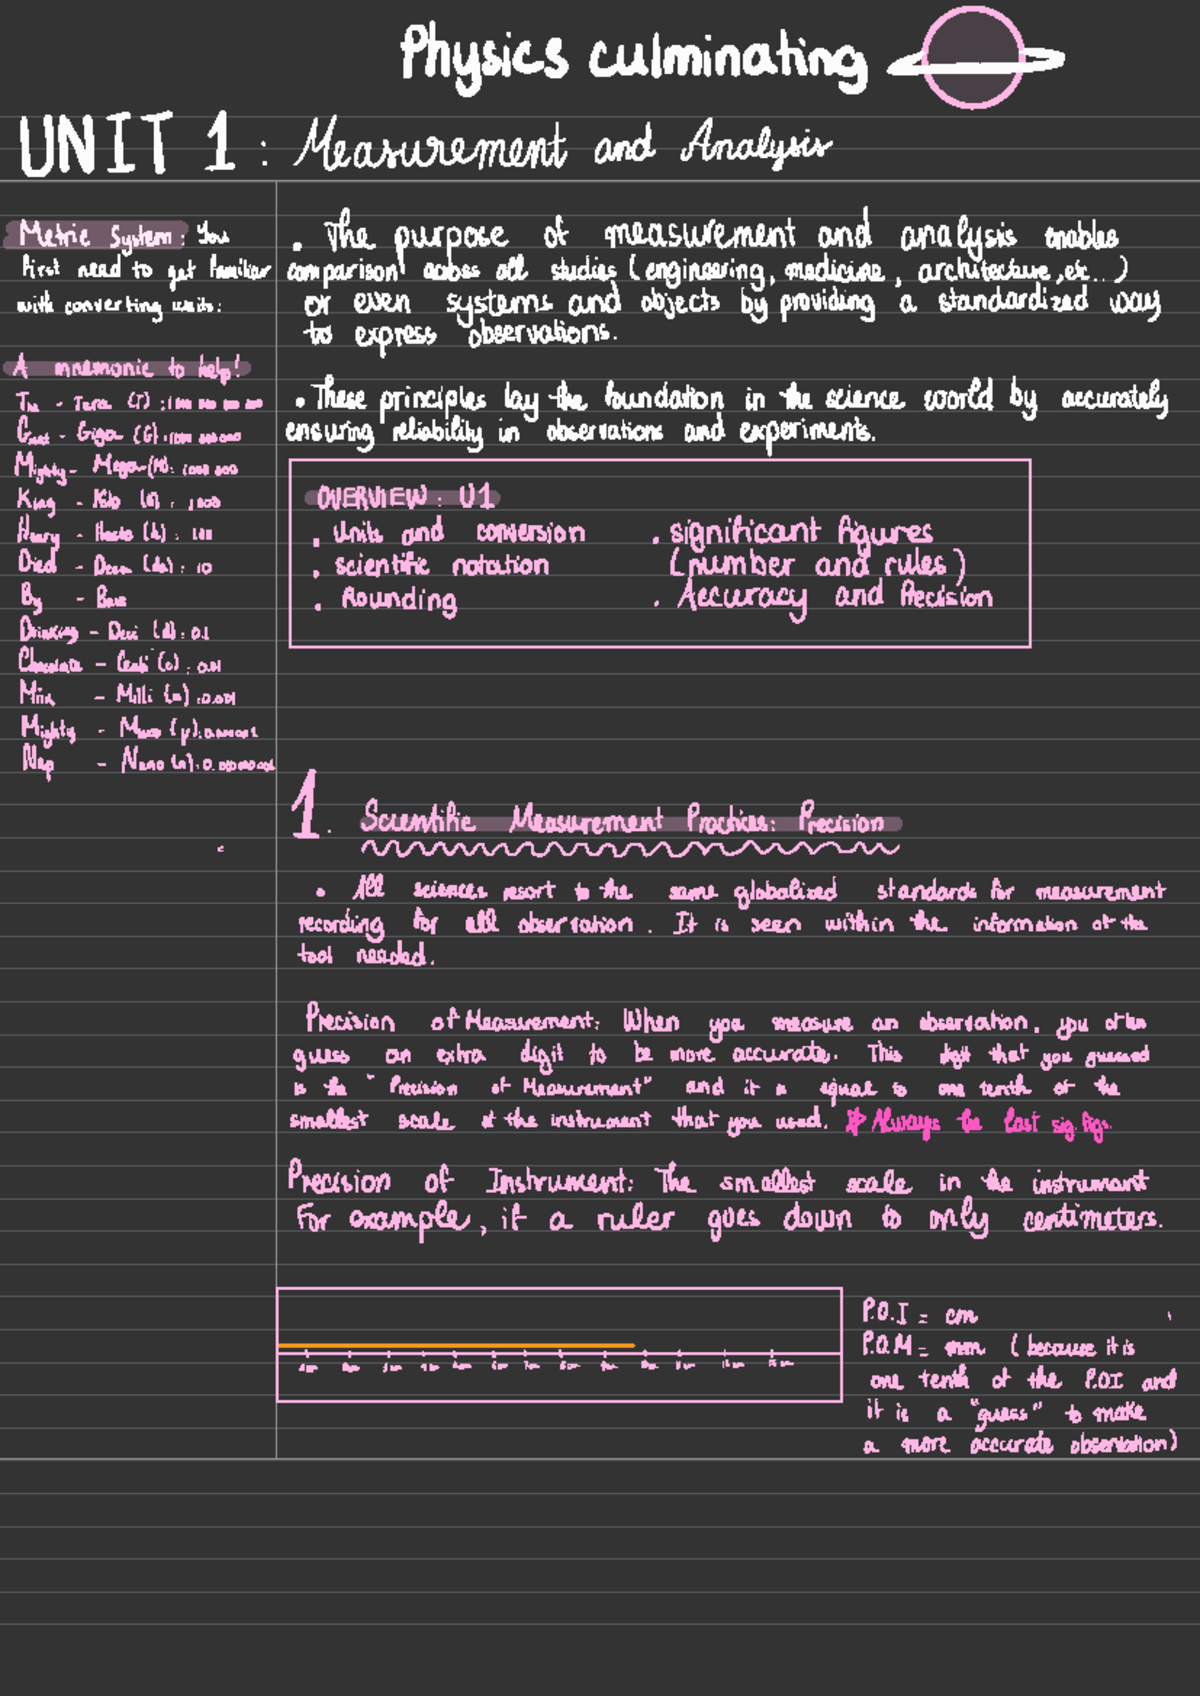 Physics culminating
UNIT 1 : Measurement and Analysis
Metric System: You
first need to get familiar
with converting units:
A mnemonic to help!
The - Tera (T) :
Great - Giga (G) :
Mighty - Mega (M):
King - Kilo (k) : 1000
Henry - Hecto (h) : 100
Died - Deca (da) : 10
By - Base
Drinking - Deci (d) : 0.1
Chocolate - Centi (c) : 0.01
Milk - Milli (m) : 0.001
Mighty - Micro (μ) :
Nap - Nano (n) :
. The purpose of measurement and analysis enables
comparison across all studies (engineering, medicine, architecture, etc...)
or even systems and objects by providing a standardized way
to express observations.
. These principles lay the foundation in the science world by accurately
ensuring reliability in observations and experiments.
OVERVIEW: U1
. Units and conversion
. scientific notation
. Rounding
. significant figures
(number and rules)
. Accuracy and Precision
1. Scientific Measurement Practices: Precision
. All sciences resort to the same globalized standards for measurement
recording for all observation. It is seen within the information of the
tool needed.
Precision of Measurement: When you measure an observation, you often
guess an extra digit to be more accurate. This digit that you guessed
is the "Precision of Measurement" and it is equal to one tenth of the
smallest scale of the instrument that you used. * Always the last sig. figs.
Precision of Instrument: The smallest scale in the instrument
For example, if a ruler goes down to only centimeters.
P.O.I = cm
P.O.M = mm (because it is
one tenth of the P.O.I and
it is a "guess" to make
a more accurate observation)